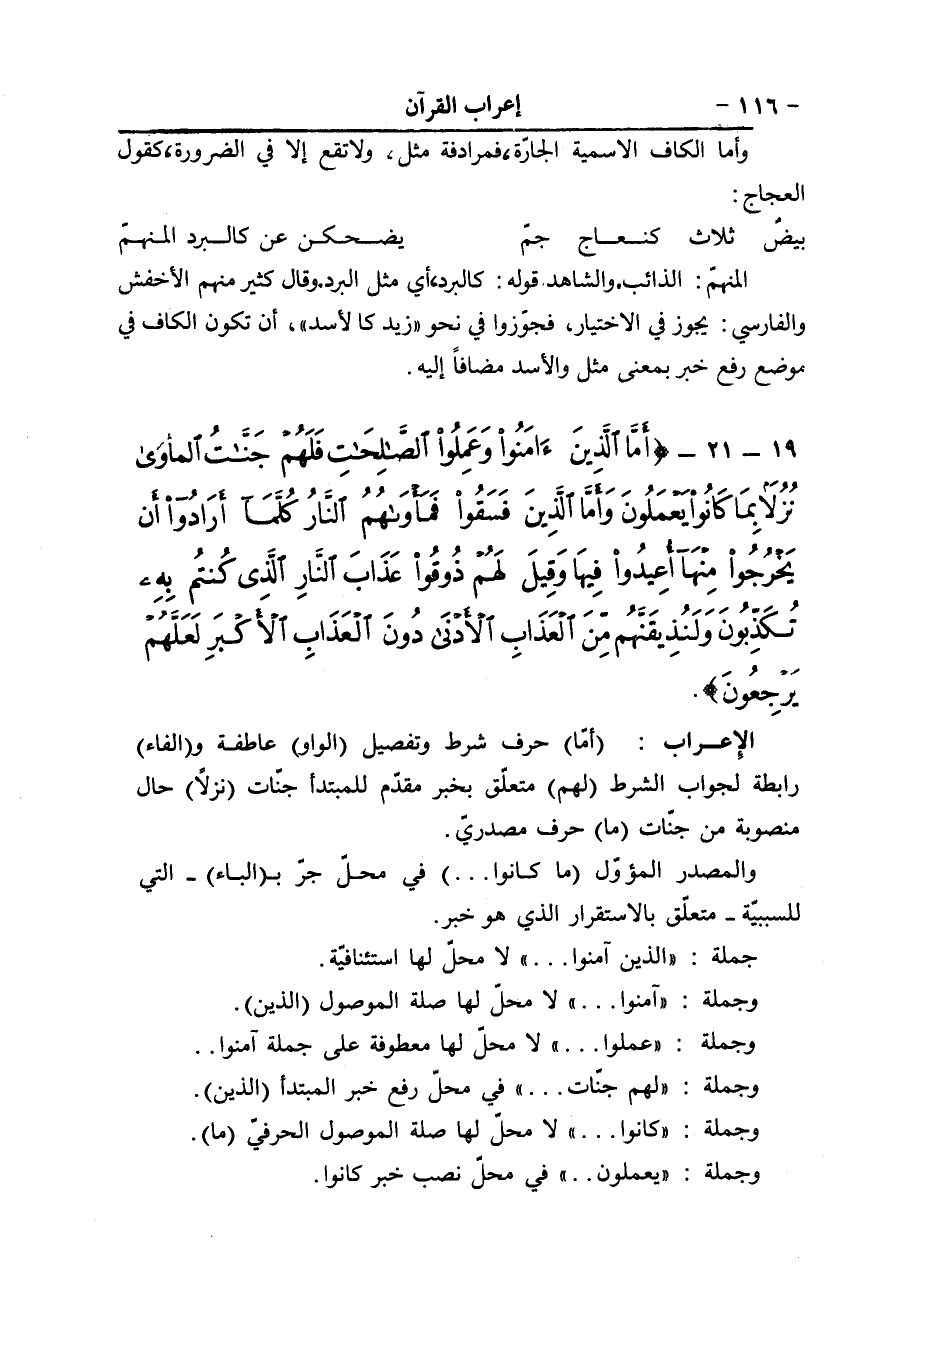 - ١١٦ - إعراب القرآن
وأما الكاف الاسمية الجارّة، فمرادفة مثل، ولاتقع إلا في الضرورة، كقول
العجاج:
بيضٌ ثلاث كنعاج جمّ يضحكن عن كالبرد المنهمّ
المنهمّ: الذائب. والشاهد قوله: كالبرد، أي مثل البرد. وقال كثير منهم الأخفش
والفارسي: يجوز في الاختيار، فجوّزوا في نحو «زيد كا لأسد»، أن تكون الكاف في
موضع رفع خبر بمعنى مثل والأسد مضافاً إليه.
١٩ - ٢١ - ﴿أَمَّا ٱلَّذِينَ ءَامَنُواْ وَعَمِلُواْ ٱلصَّٰلِحَٰتِ فَلَهُمْ جَنَّٰتُ ٱلْمَأْوَىٰ
نُزُلًۢا بِمَا كَانُواْ يَعْمَلُونَ وَأَمَّا ٱلَّذِينَ فَسَقُواْ فَمَأْوَىٰهُمُ ٱلنَّارُ كُلَّمَآ أَرَادُوٓاْ أَن
يَخْرُجُواْ مِنْهَآ أُعِيدُواْ فِيهَا وَقِيلَ لَهُمْ ذُوقُواْ عَذَابَ ٱلنَّارِ ٱلَّذِى كُنتُم بِهِۦ
تُكَذِّبُونَ وَلَنُذِيقَنَّهُم مِّنَ ٱلْعَذَابِ ٱلْأَدْنَىٰ دُونَ ٱلْعَذَابِ ٱلْأَكْبَرِ لَعَلَّهُمْ
يَرْجِعُونَ﴾.
الإعراب : (أمّا) حرف شرط وتفصيل (الواو) عاطفة و(الفاء)
رابطة لجواب الشرط (لهم) متعلّق بخبر مقدّم للمبتدأ جنّات (نزلًا) حال
منصوبة من جنّات (ما) حرف مصدريّ.
والمصدر المؤوّل (ما كانوا...) في محلّ جرّ بـ(الباء) - التي
للسببيّة - متعلّق بالاستقرار الذي هو خبر.
جملة : «الذين آمنوا...» لا محلّ لها استئنافيّة.
وجملة : «آمنوا...» لا محلّ لها صلة الموصول (الذين).
وجملة : «عملوا...» لا محلّ لها معطوفة على جملة آمنوا..
وجملة : «لهم جنّات...» في محلّ رفع خبر المبتدأ (الذين).
وجملة : «كانوا...» لا محلّ لها صلة الموصول الحرفيّ (ما).
وجملة : «يعملون..» في محلّ نصب خبر كانوا.